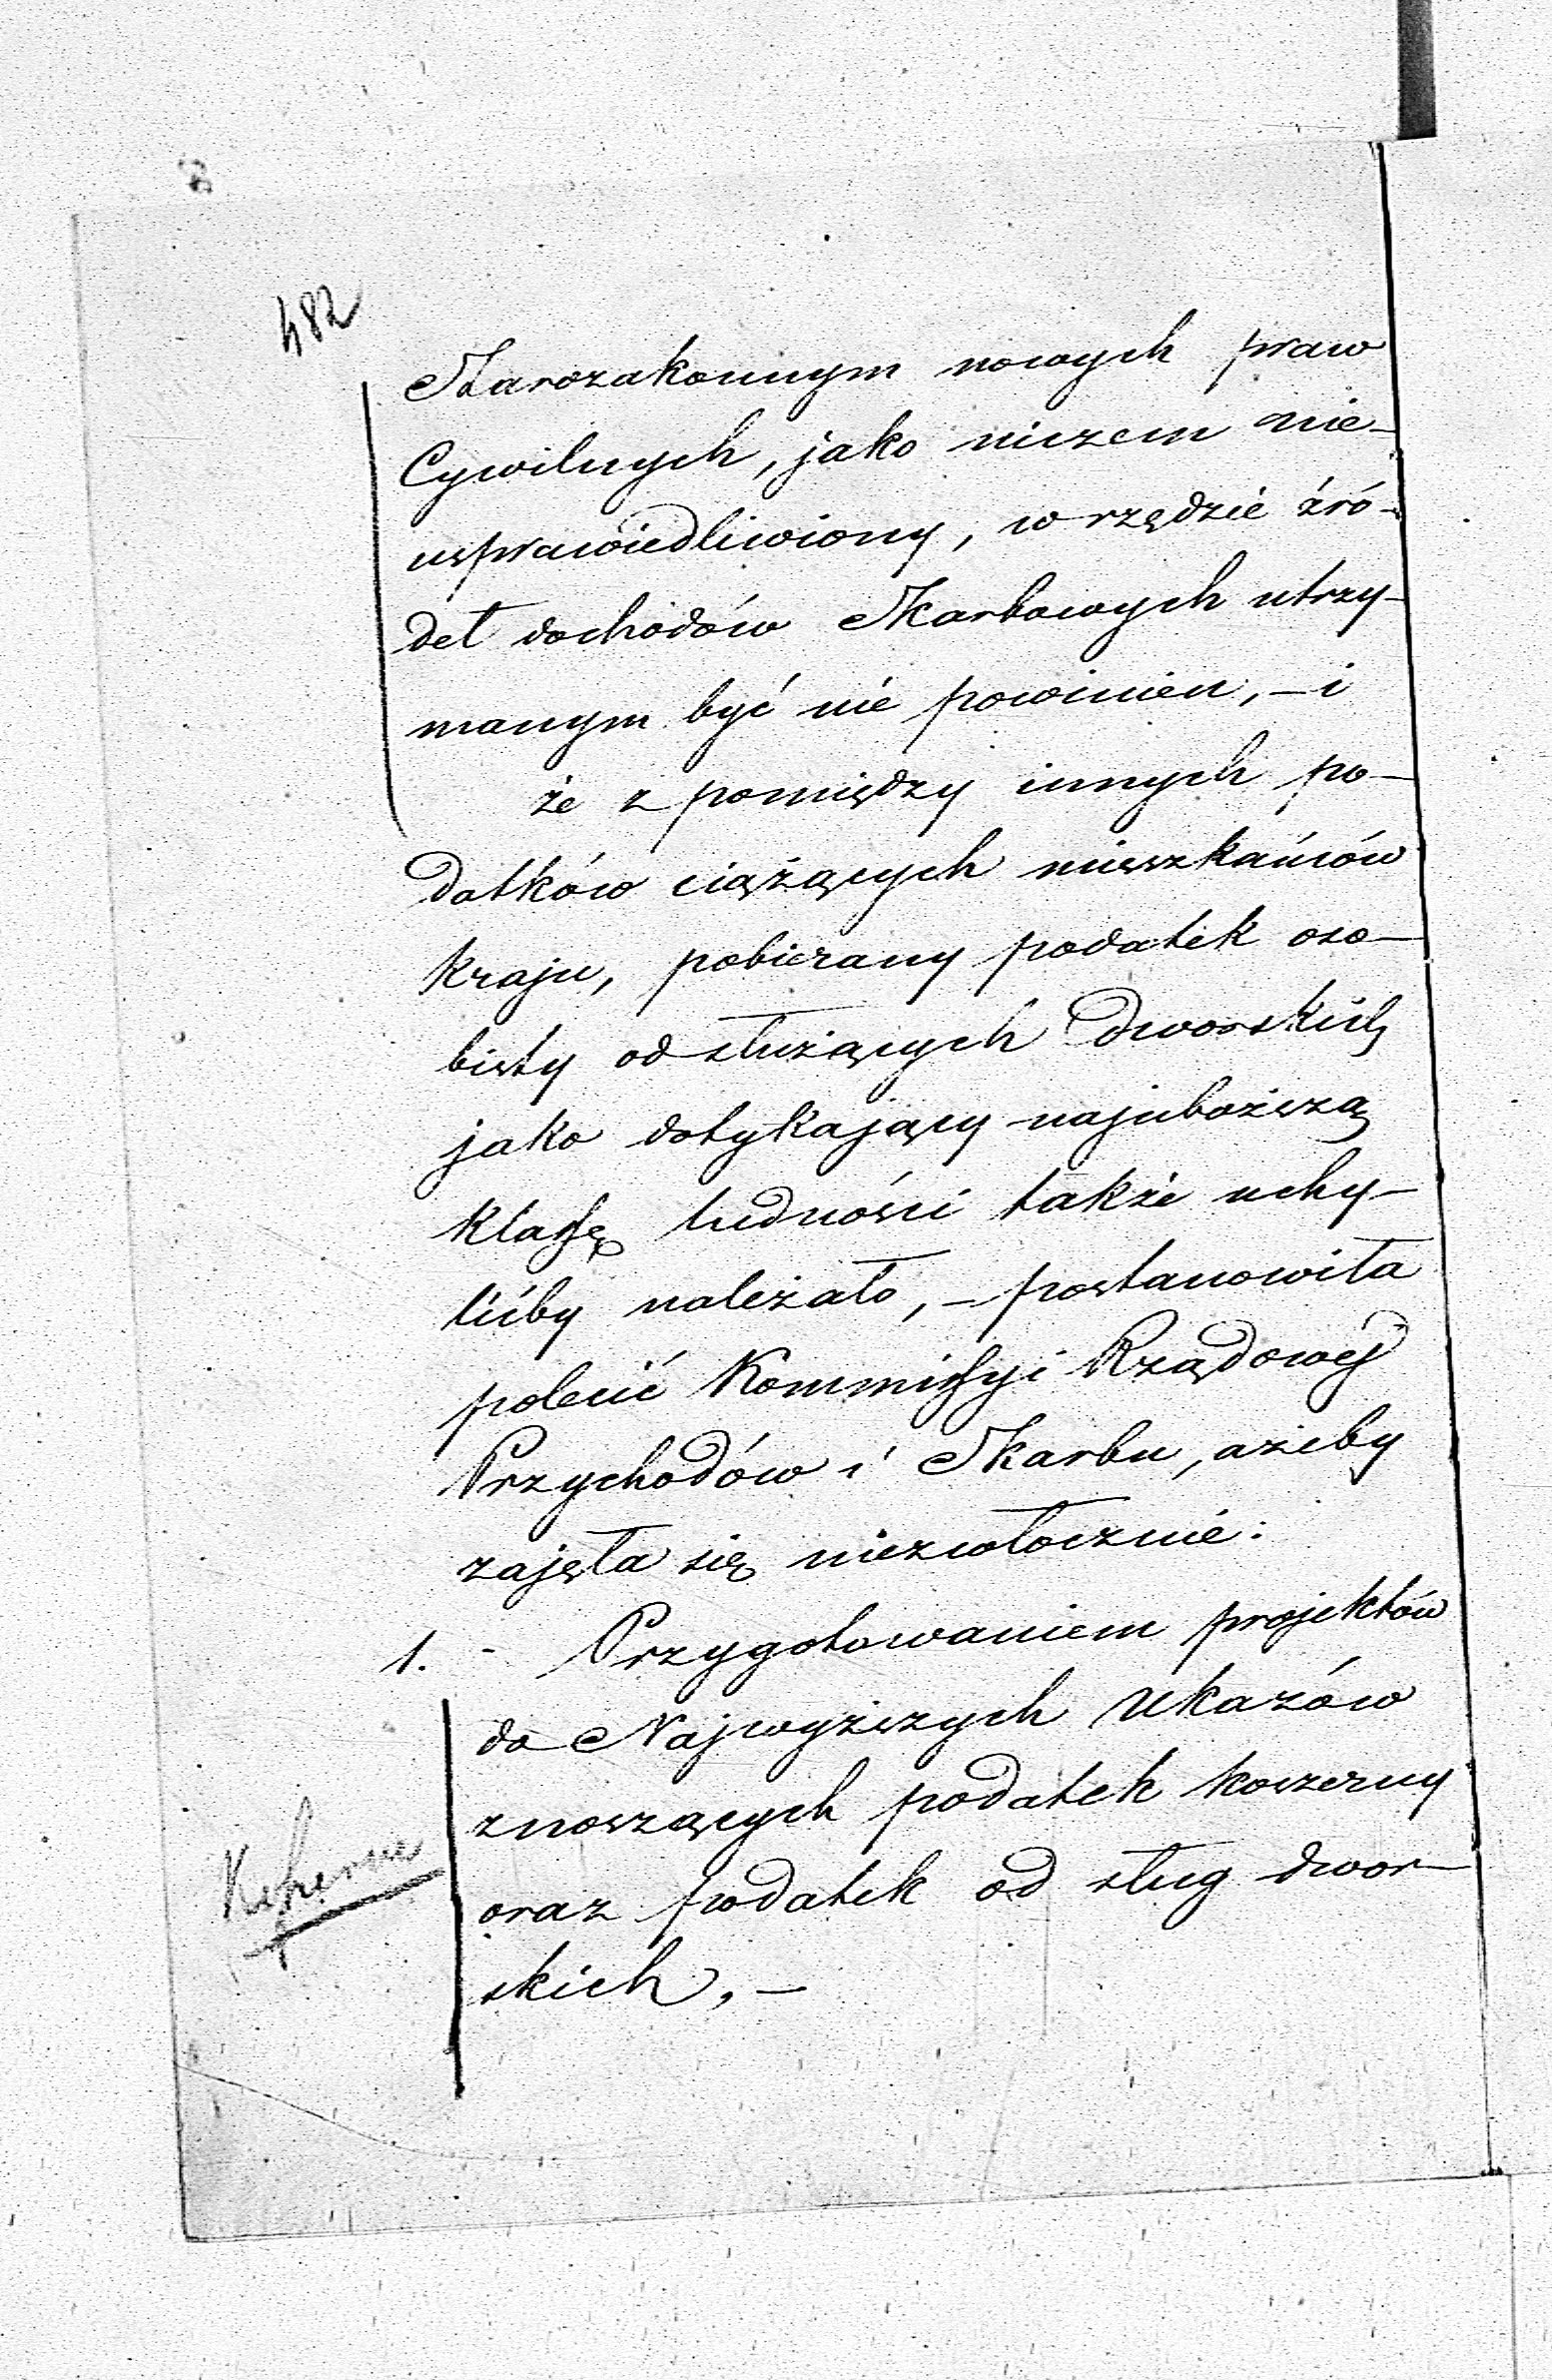 482
Starozakonnym nowych praw
Cywilnych, jako niczem nie-
usprawiedliwiony, w rzędzie źró-
deł dochodów Skarbowych utrzy-
manym być nie powinien, – i
że z pomiędzy innych po-
datków ciążących mieszkańców
Kraju, pobierany podatek oso-
bisty od służących Dworskich
jako dotykający najuboższą
klassę ludności także uchy-
lićby należało, – postanowiła
polecić Kommissyi Rządowej
Przychodów i Skarbu, ażeby
zajęła się niezwłocznie:
1. - Przygotowaniem projektów
do Najwyższych Ukazów
znoszących podatek koszerny
oraz podatek od sług dwor-
skich, –